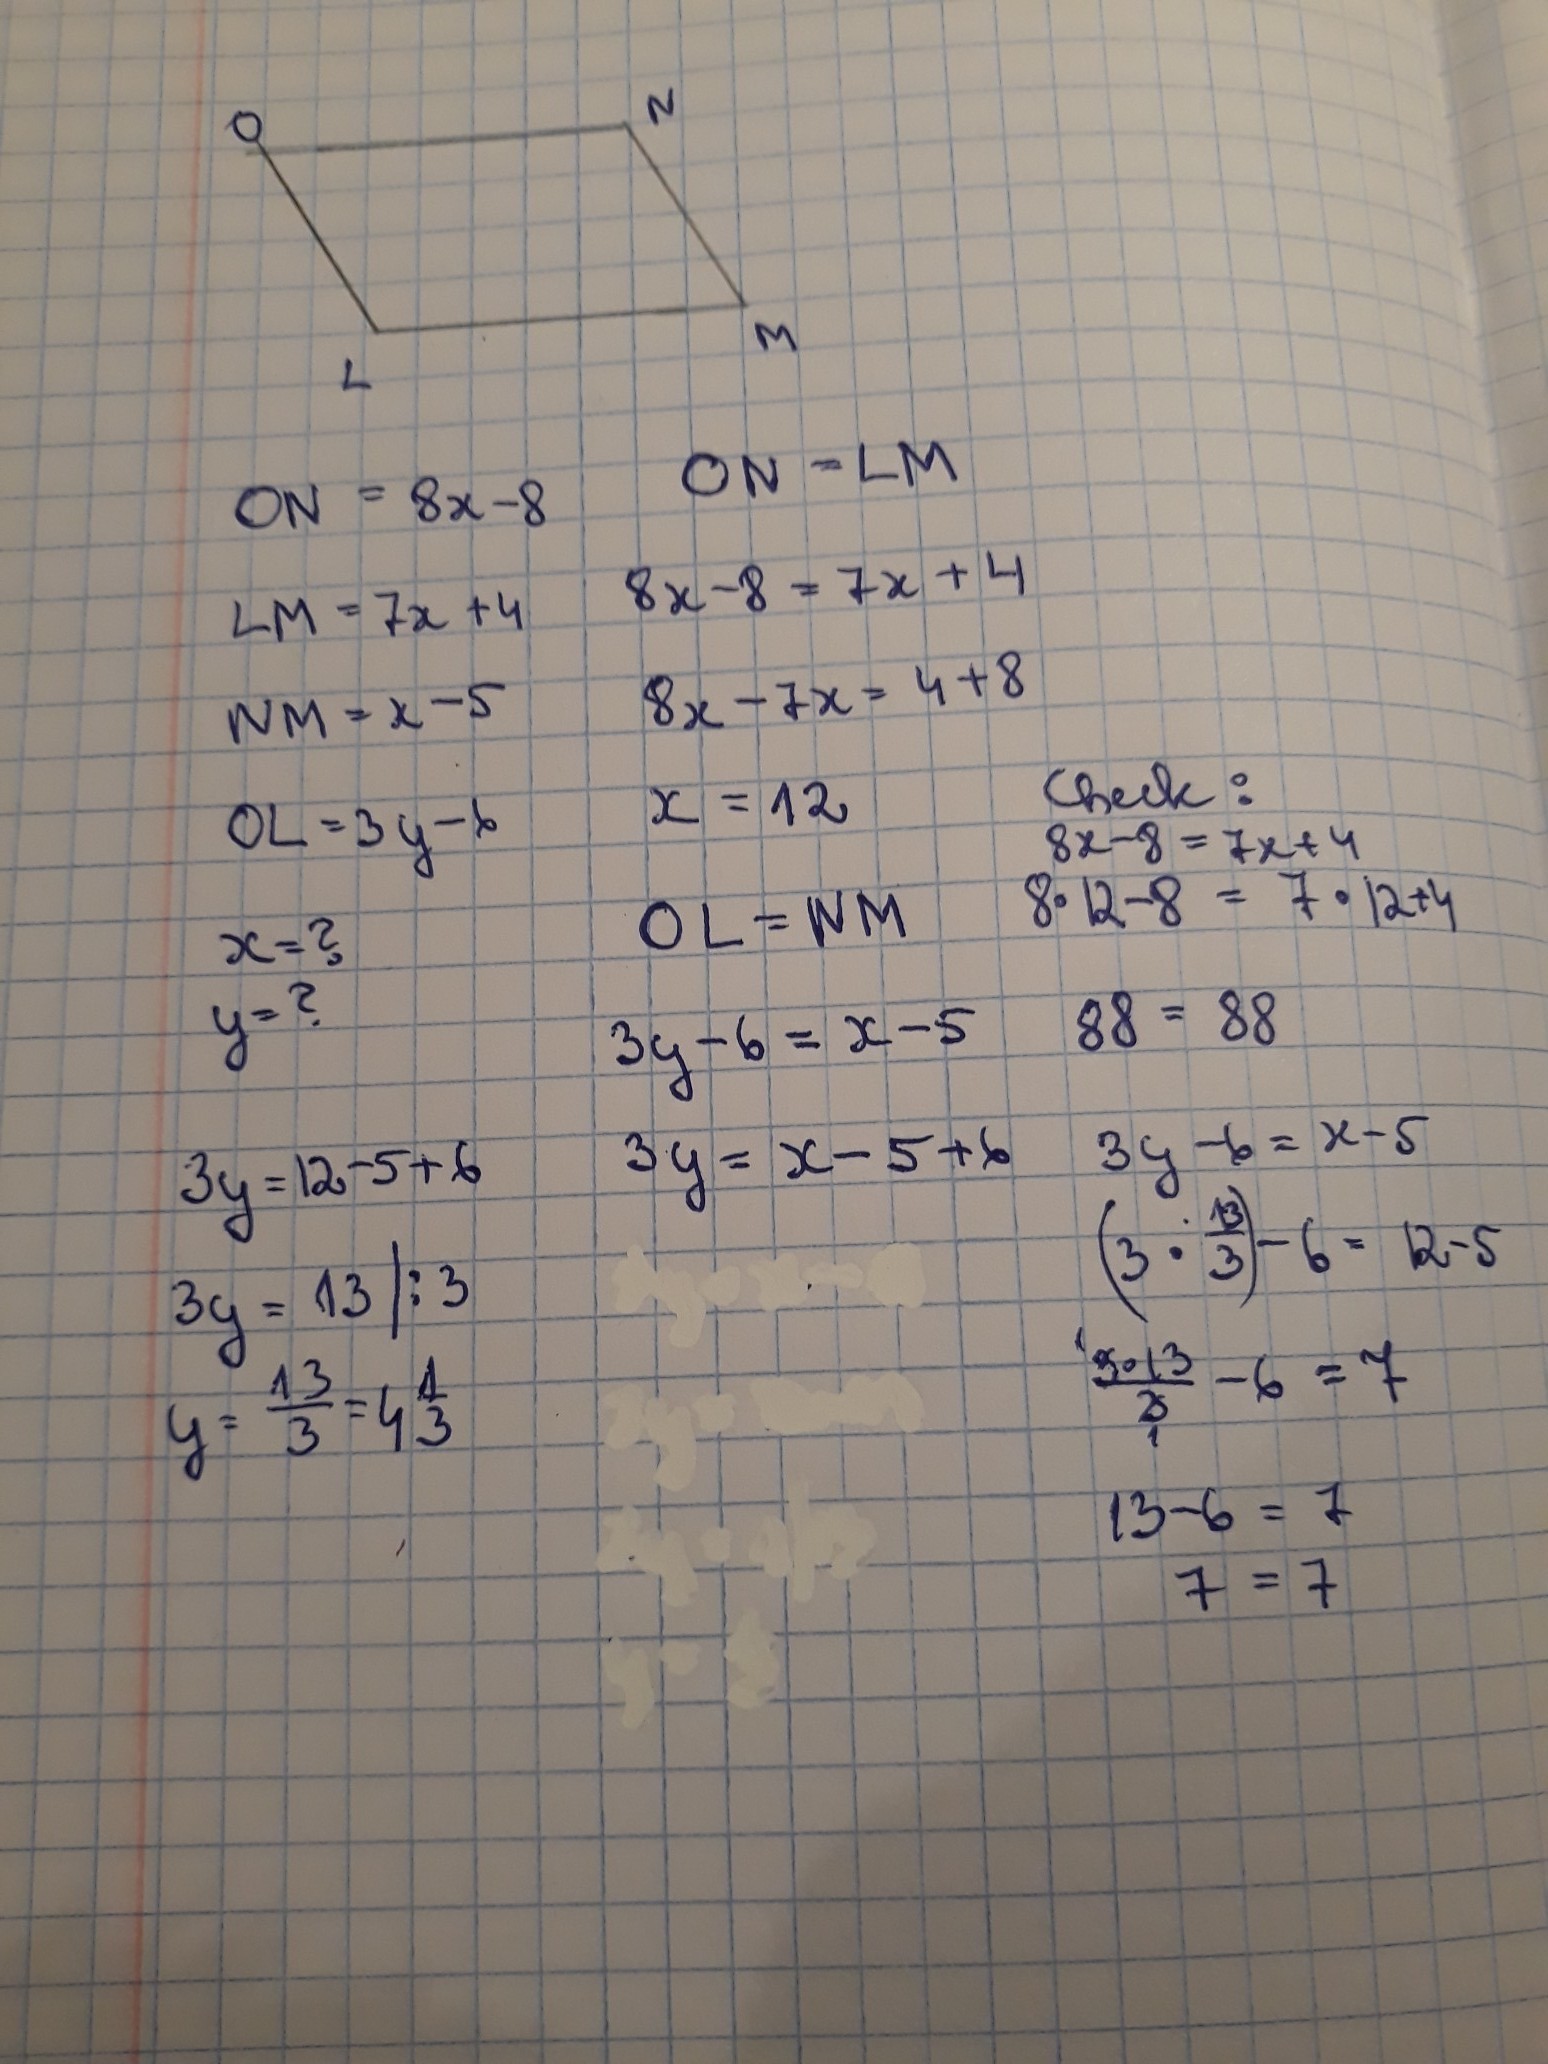 O
N
L
M
ON = 8x-8
LM = 7x+4
NM = x-5
OL = 3y-6
x=?
y=?
ON = LM
8x-8 = 7x+4
8x-7x = 4+8
x = 12
OL = NM
3y-6 = x-5
3y = x-5+6
3y = 12-5+6
3y = 13 |:3
y = 13/3 = 4 1/3
Check:
8x-8 = 7x+4
8·12-8 = 7·12+4
88 = 88
3y-6 = x-5
(3·13/3)-6 = 12-5
1 3·13/3 1 -6 = 7
13-6 = 7
7 = 7